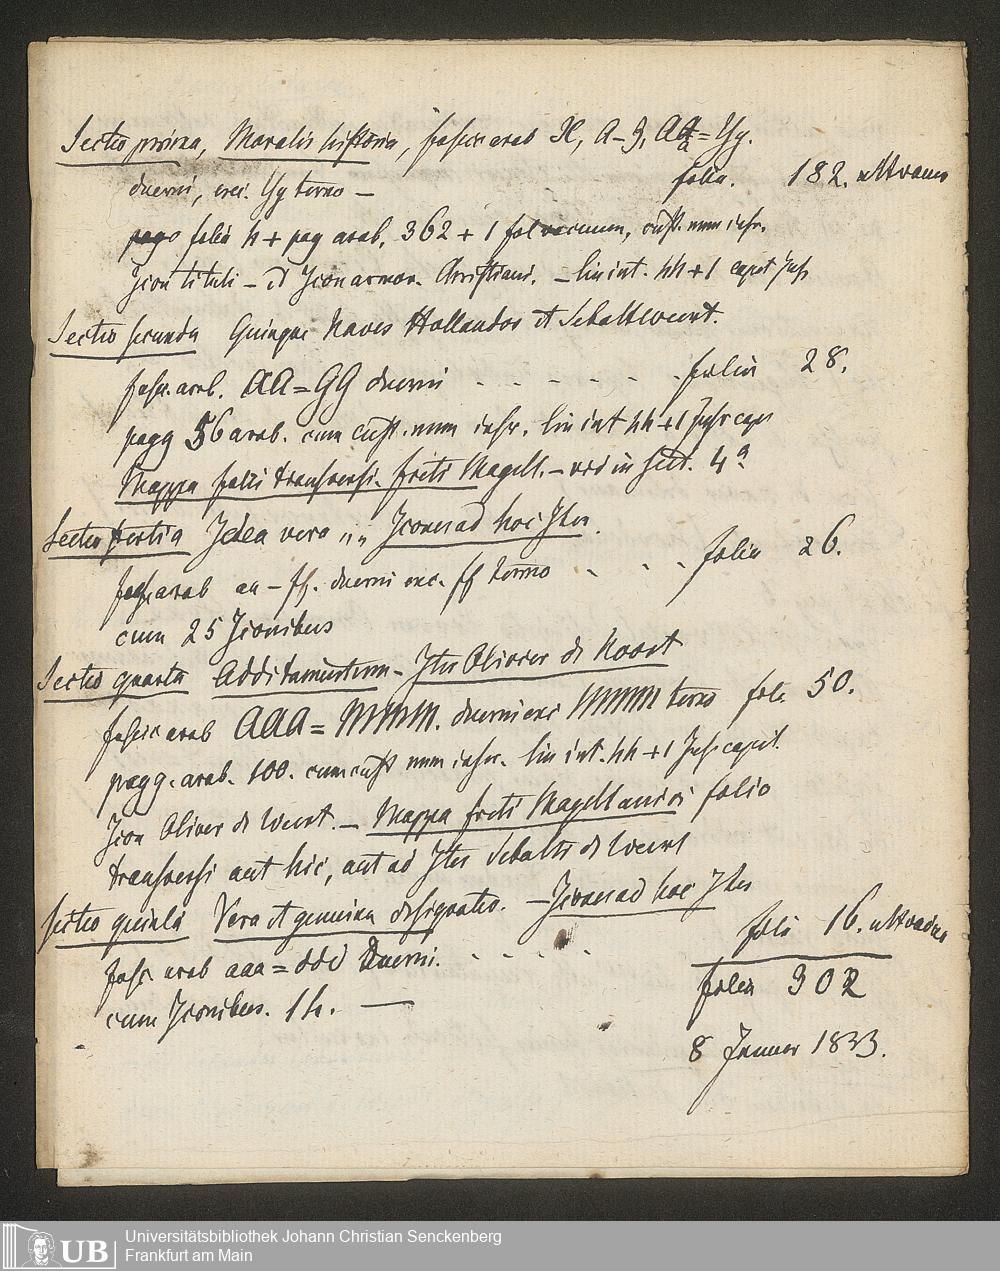 Sectio prima, Moralis historia, fascic arab )(, A–Z, Aa = Yy.
duerni, exc. Yy terno — folia. 182. ult vacuo
folia 4 + pag arab. 362 + 1 fol vacuum, cust. num infr.
Icon tituli – et Icon armor. Christiani. – lin int. 44 + 1 caput Infr
Sectio secunda Quinque Naves Hollandor et Sebalt weert.
fasc. arab. AA = GG duerni - - - - - - folia 28.
pagg 56 arab. cum cust. num infr. lin int 44 + 1 Infr cap
Mappa folii transversi. freti Magell. – vid in Sect. 4a
Sectio tertia Idea vera „ „ Icones ad hoc Iter.
fasc arab aa – ff. duerni exc. ff terno - - - folia 26.
cum 25 Iconibus
Sectio quarta Additamentum – Iter Olivier di Noort
fascic arab AAA = MMMM. duerni exc MMMM terno fol. 50.
pagg. arab. 100. cum cust num infr. lin int. 44 + 1 Infr caput.
Icon Oliver di Weert. – Mappa freti Magellanici folio
transversi aut hic, aut ad Iter Sebalti di Weert
Sectio quinta Vera et genuina designatio. – Icones ad hoc Iter
fasc arab aaa = ddd duerni. - - - - foli 16. ult vacuo
cum Iconibus. 14. — folia 302
8 Januar 1833.
UB Universitätsbibliothek Johann Christian Senckenberg
Frankfurt am Main